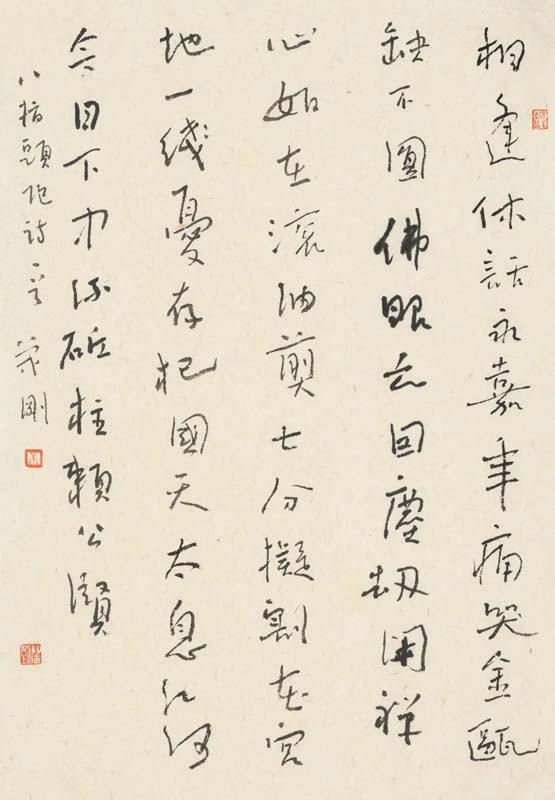 相逢休話永嘉年痛哭金甌
缺不圓佛眼回塵劫閑禪
心如在滾油煎七分擬割宮
地一綫憂存杞國天太息江河
今日下中流砥柱賴公賢
八指頭陀詩一首剛